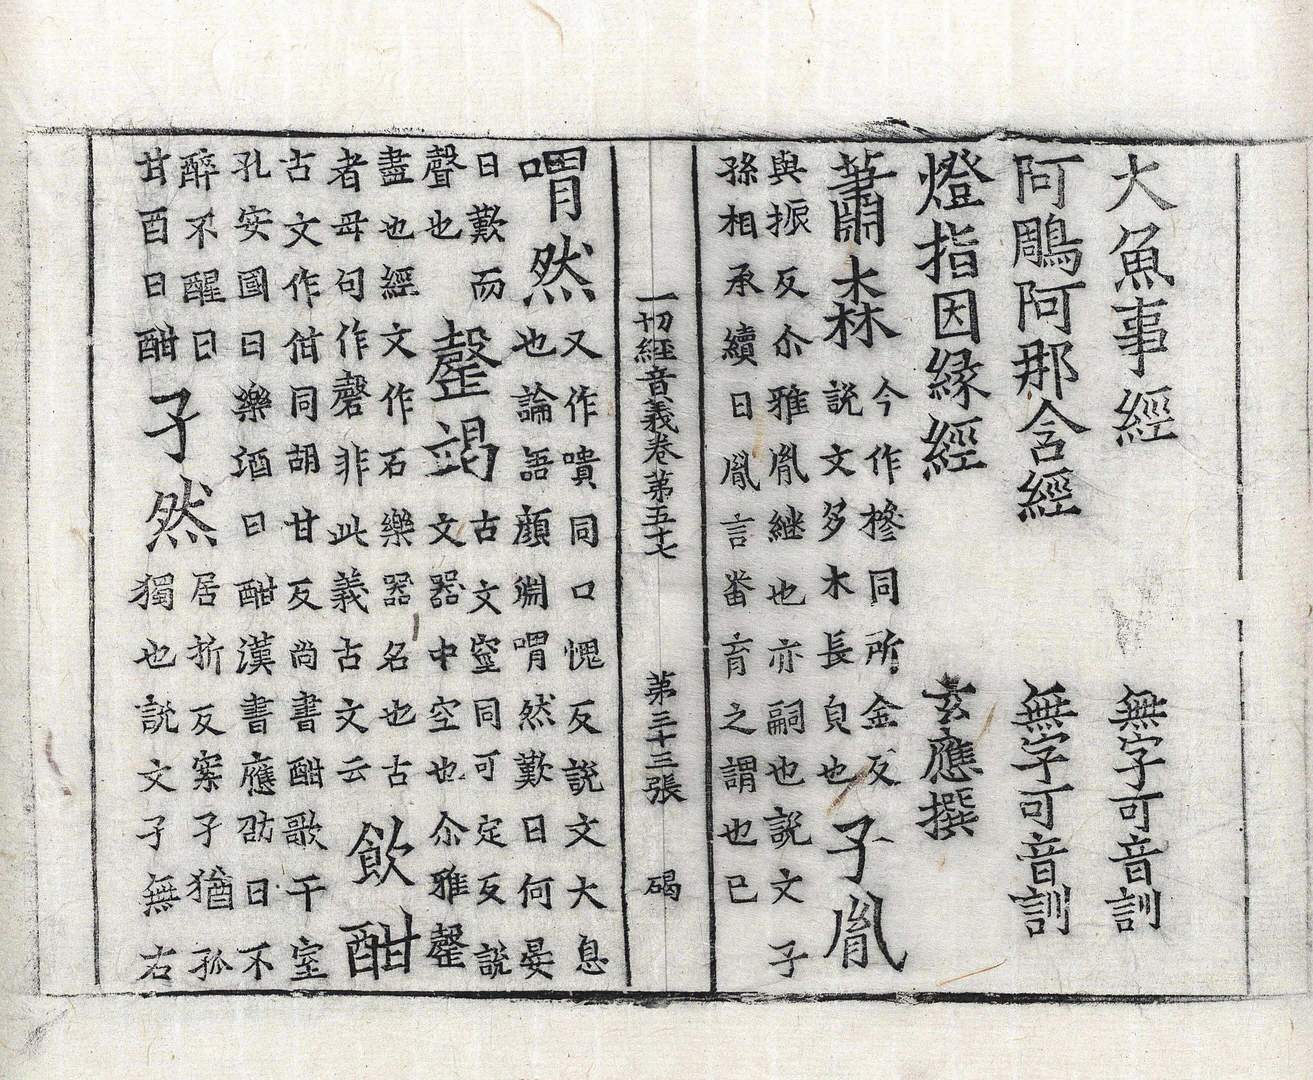 大魚事經 無字可音訓
阿鵰阿那含經 無字可音訓
燈指因緣經 玄應撰
蕭森 今作槮同所金反說文多木長皃也 子胤
與振反尒雅胤継也亦嗣也說文子
孫相承續曰胤言蕃育之謂也已
一切經音義卷第五十七 第三十三張 碣
喟然 又作嘳同口愧反說文大息也論語顏淵喟然歎曰何晏
曰歎而聲也 罄竭 古文窒同可定反說文器中空也尒雅罄
盡也經文作石樂器名也古者毋句作磬非此義古文云 飲酣
古文作佄同胡甘反尚書酣歌于室
孔安國曰樂酒曰酣漢書應劭曰不
醉不醒曰甘酉曰酣 孑然 居折反案孑猶孤獨也說文孑無右